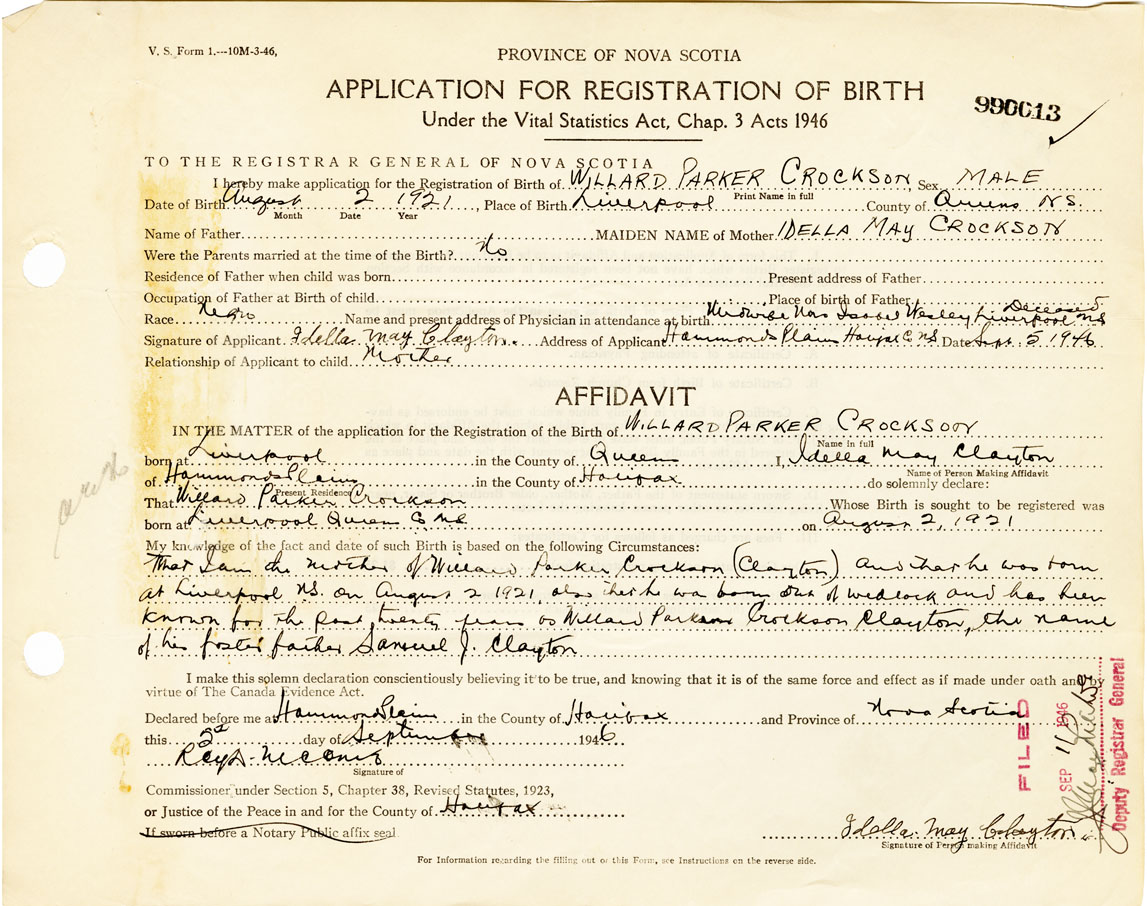 V. S. Form 1.---10M-3-46,
PROVINCE OF NOVA SCOTIA
APPLICATION FOR REGISTRATION OF BIRTH
990013
Under the Vital Statistics Act, Chap. 3 Acts 1946
TO THE REGISTRAR GENERAL OF NOVA SCOTIA
I hereby make application for the Registration of Birth of WILLARD PARKER CROCKSON, Sex MALE
Print Name in full
Date of Birth August 2 1921, Place of Birth Liverpool County of Queens N.S.
Month Date Year
Name of Father MAIDEN NAME of Mother IDELLA MAY CROCKSON
Were the Parents married at the time of the Birth? No
Residence of Father when child was born Present address of Father
Occupation of Father at Birth of child Place of birth of Father
Deceased
Race Negro Name and present address of Physician in attendance at birth Midwife Mrs Isaac Wesley Liverpool NS
Signature of Applicant Idella May Clayton Address of Applicant Hammonds Plain Halifax C NS Date Sept. 2 1946
Relationship of Applicant to child Mother
AFFIDAVIT
IN THE MATTER of the application for the Registration of the Birth of WILLARD PARKER CROCKSON
Name in full
born at Liverpool in the County of Queen I, Idella May Clayton
Name of Person Making Affidavit
of Hammonds Plain in the County of Halifax do solemnly declare:
Present Residence
That Willard Parker Crockson Whose Birth is sought to be registered was
born at Liverpool Queen C NS on August 2, 1921
My knowledge of the fact and date of such Birth is based on the following Circumstances:
That I am the mother of Willard Parker Crockson (Clayton) and that he was born
at Liverpool N.S. on August 2 1921, also that he was born out of wedlock and has been
known for the past twenty years as Willard Parker Crockson Clayton, the name
of his foster father Samuel J. Clayton
I make this solemn declaration conscientiously believing it to be true, and knowing that it is of the same force and effect as if made under oath and by
virtue of The Canada Evidence Act.
Declared before me at Hammonds Plain in the County of Halifax and Province of Nova Scotia
this 2nd day of September 1946
Signature of
Commissioner under Section 5, Chapter 38, Revised Statutes, 1923,
or Justice of the Peace in and for the County of Halifax
If sworn before a Notary Public affix seal
Idella May Clayton
Signature of Person making Affidavit
For Information regarding the filling out of this Form, see Instructions on the reverse side.
FILED
SEP 1946
Deputy Registrar General